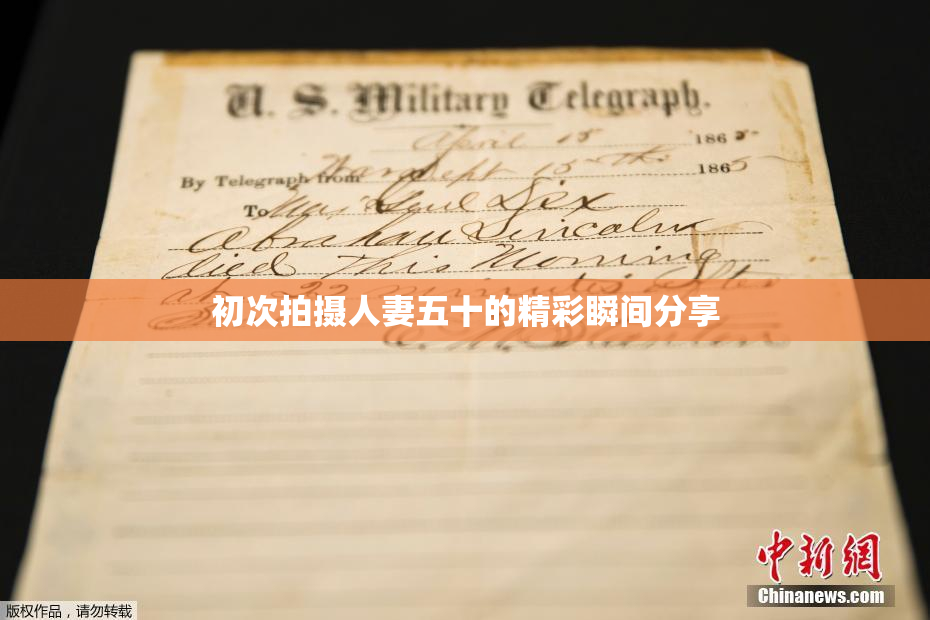 U. S. Military Telegraph.
April 15 1865
By Telegraph from War Dept 15th 1865
To Maj Genl Dix
Abraham Lincoln
died This Morning
at 22 minutes after
初次拍摄人妻五十的精彩瞬间分享
中新網
版权作品，请勿转载
Chinanews.com